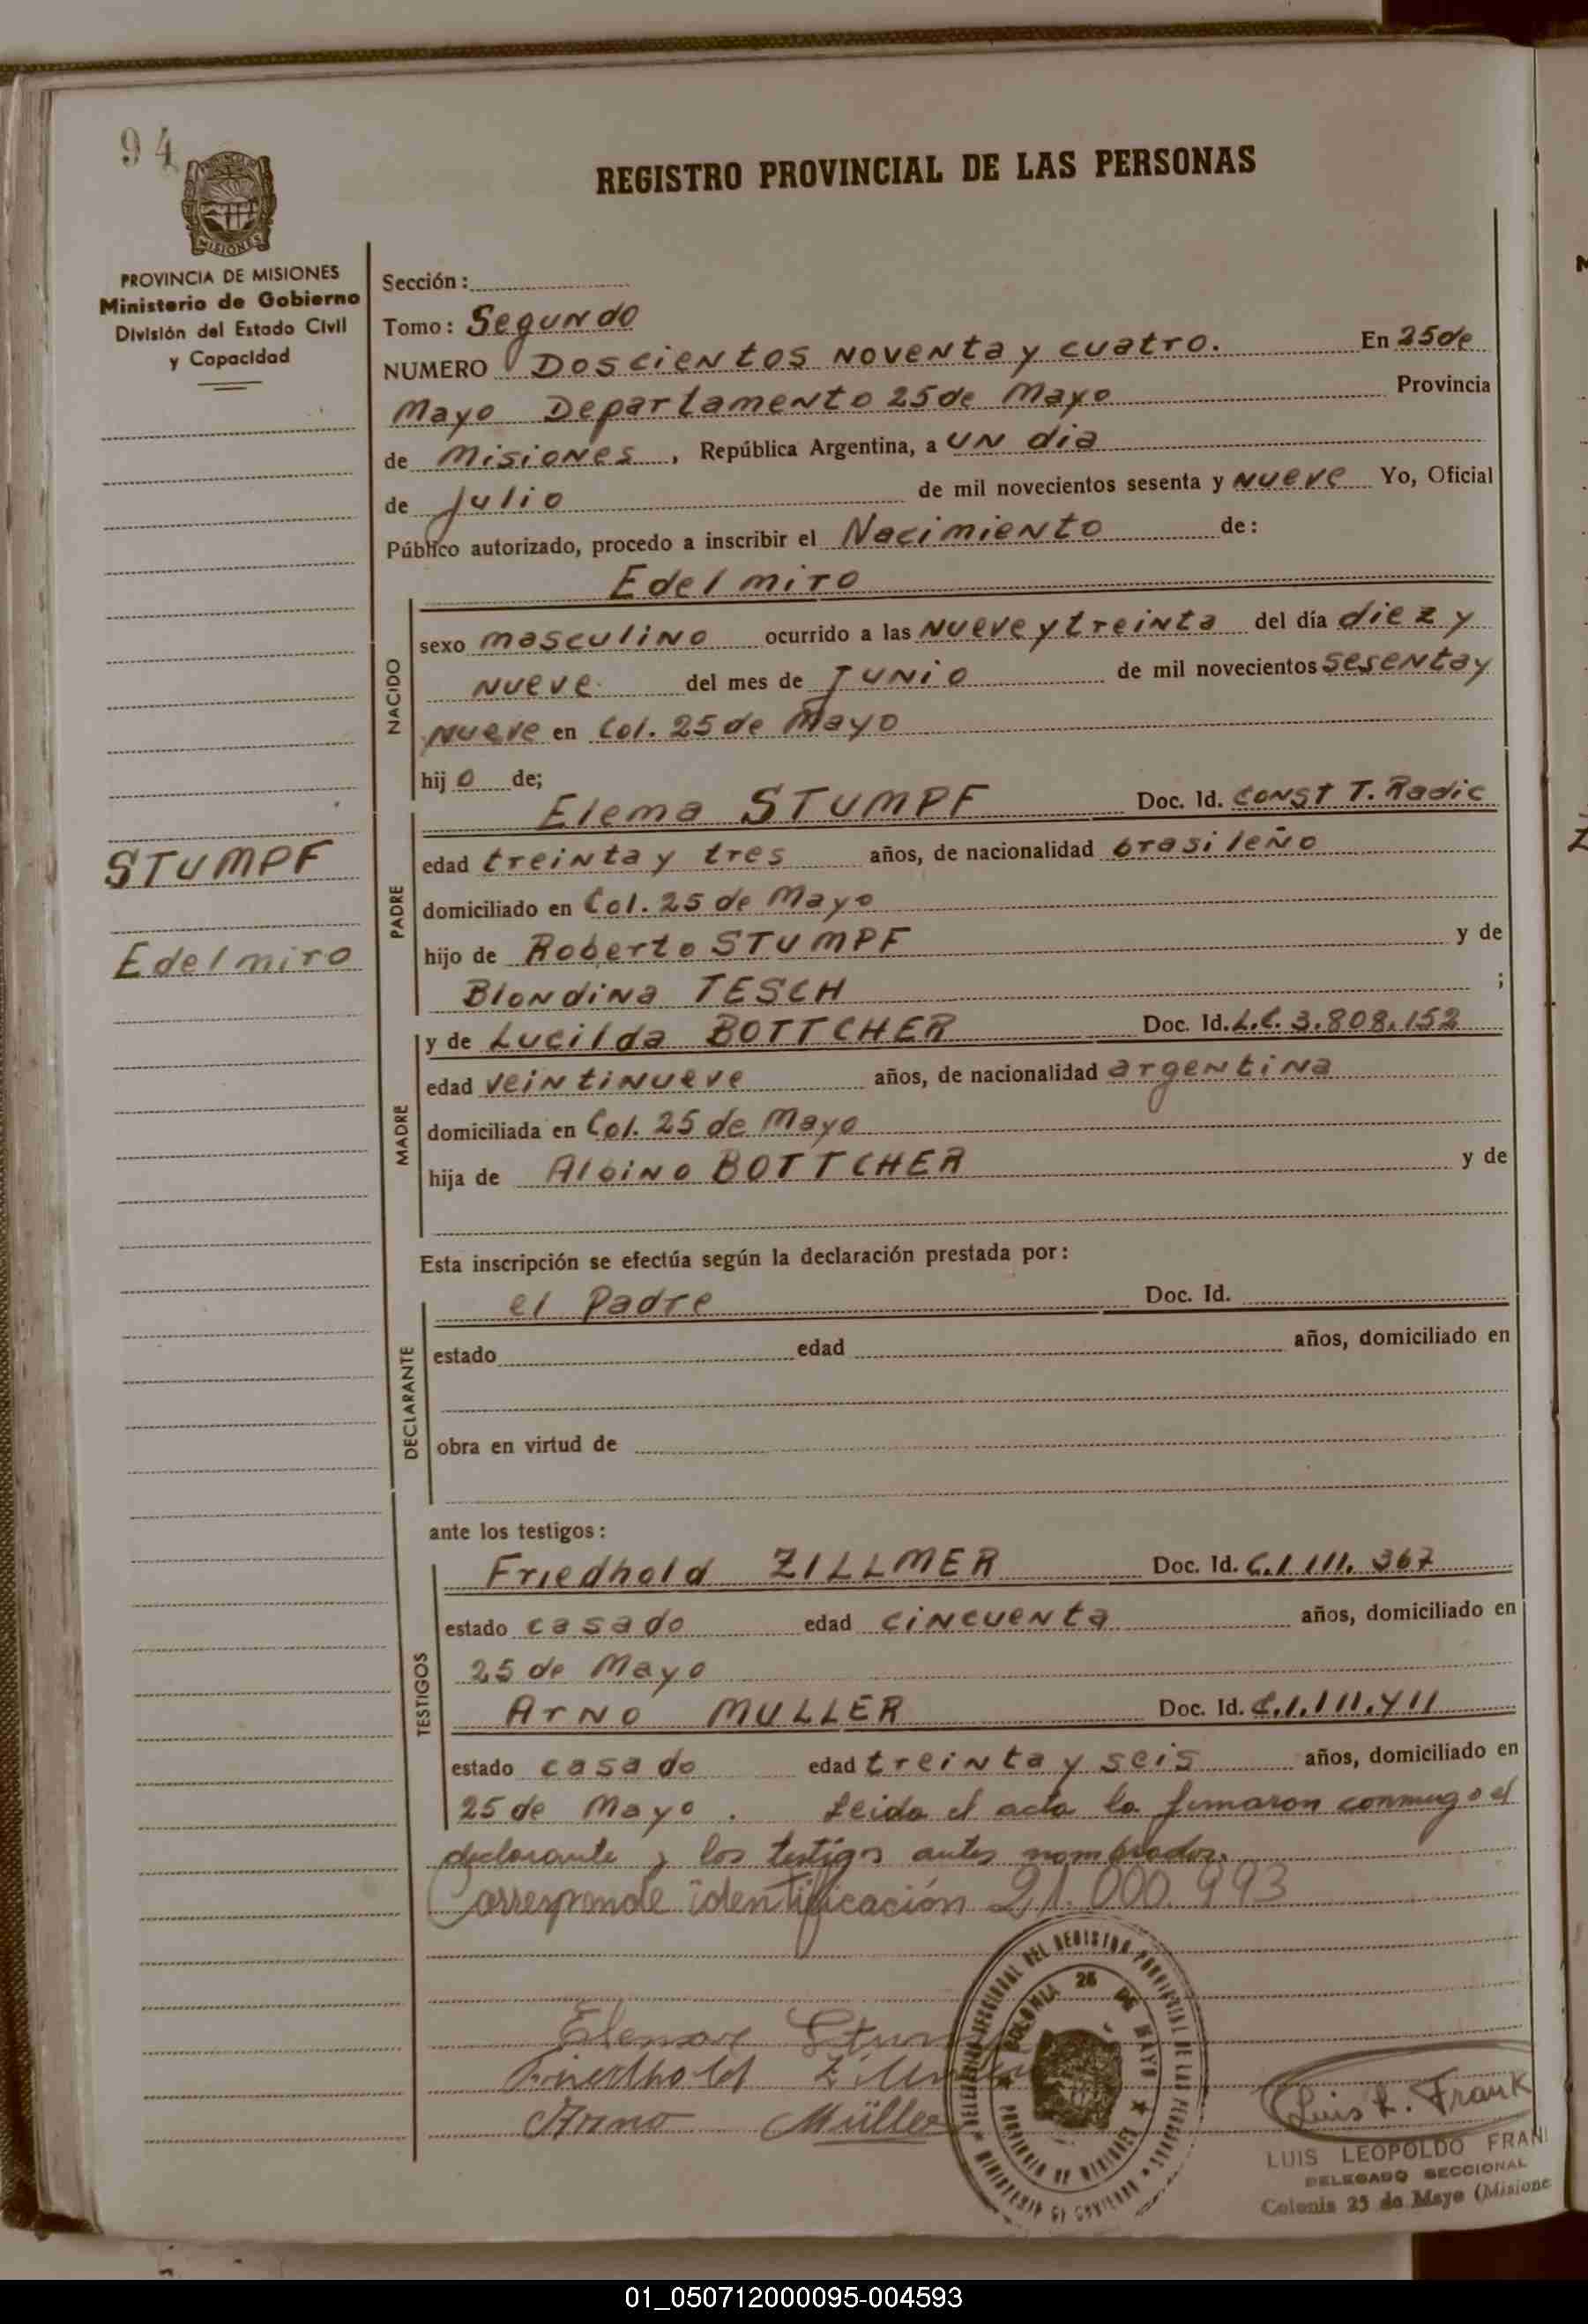 94
REGISTRO PROVINCIAL DE LAS PERSONAS
MISIONES
PROVINCIA DE MISIONES
Ministerio de Gobierno
División del Estado Civil
y Capacidad
Sección:
Tomo: Segundo
NUMERO Doscientos noventa y cuatro. En 25 de
Mayo Departamento 25 de Mayo Provincia
de Misiones, República Argentina, a un dia
de Julio de mil novecientos sesenta y nueve Yo, Oficial
Público autorizado, procedo a inscribir el Nacimiento de:
Edelmiro
NACIDO
sexo masculino ocurrido a las nueve y treinta del día diez y
nueve del mes de Junio de mil novecientos sesenta y
nueve en Col. 25 de Mayo
hijo de;
STUMPF
Edelmiro
PADRE
Elema STUMPF Doc. Id. Const T. Radic
edad treinta y tres años, de nacionalidad brasileño
domiciliado en Col. 25 de Mayo
hijo de Roberto STUMPF y de
Blondina TESCH ;
MADRE
y de Lucilda BOTTCHER Doc. Id. L.C. 3.808.152
edad veintinueve años, de nacionalidad argentina
domiciliada en Col. 25 de Mayo
hija de Albino BOTTCHER y de
Esta inscripción se efectúa según la declaración prestada por:
DECLARANTE
el padre Doc. Id.
estado edad años, domiciliado en
obra en virtud de
ante los testigos:
TESTIGOS
Friedhold ZILLMER Doc. Id. C.I 111. 367
estado casado edad cincuenta años, domiciliado en
25 de Mayo
Arno MULLER Doc. Id. C.I. 111.411
estado casado edad treinta y seis años, domiciliado en
25 de Mayo. Leida el acta la firmaron conmigo el
declarante y los testigos antes nombrados.
Corresponde identificación 21.000.993
Friedhold
Arno Müller
COLONIA 25 DE MAYO
PROVINCIA DE MISIONES
Luis L. Frank
LUIS LEOPOLDO FRAN
DELEGADO SECCIONAL
Colonia 25 de Mayo (Misione
01_050712000095-004593